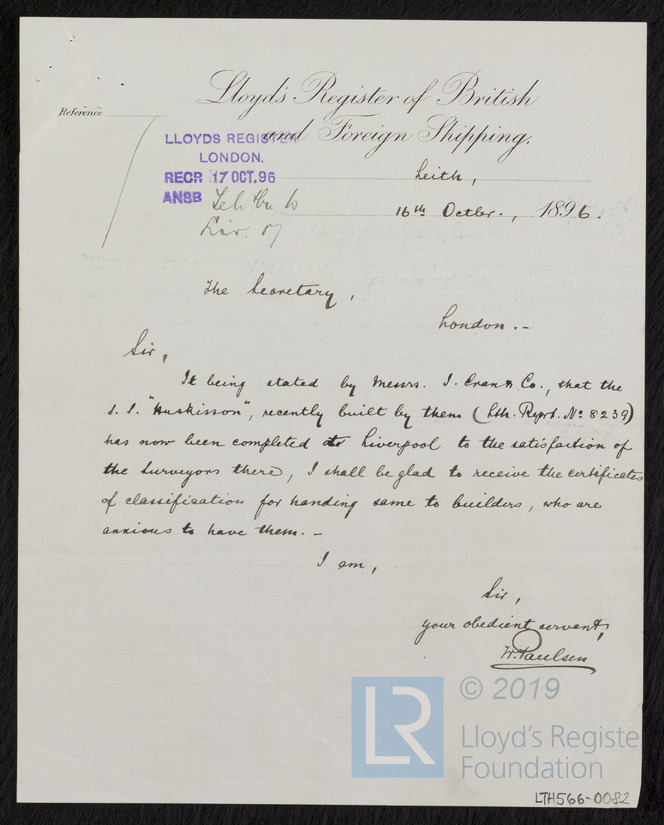 Lloyd's Register of British
and Foreign Shipping.
Reference
LLOYDS REGISTER
LONDON.
RECR 17 OCT. 96
ANSB
Leith,
16th Octber., 1896.
The Secretary,
London.-
Sir,
It being stated by Messrs. J. Cran & Co., that the
s.s. "Huskisson", recently built by them (Lth. Reprt. No 8239)
has now been completed at Liverpool to the satisfaction of
the Surveyors there, I shall be glad to receive the certificates
of classification for handing same to builders, who are
anxious to have them.-
I am,
Sir,
your obedient servant,
W. Paulsen
LR © 2019
Lloyd's Registe
Foundation
LTH566-0082